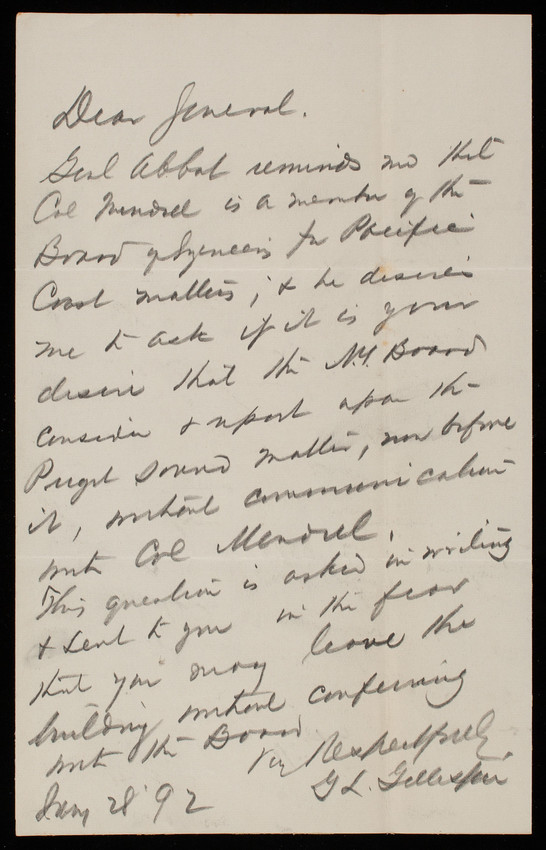 Dear General.
Genl Abbot reminds me that
Col Mendell is a member of the
Board of Engineers for Pacific
Coast matters, & he desires
me to ask if it is your
desire that the N.Y. Board
consider & report upon the
Puget Sound matter, now before
it, without communication
with Col Mendell.
This question is asked in writing
& sent to you in the fear
that you may leave the
building without conferring
with the Board
Very Respectfully
G L. Gillespie
Jany 28 '92